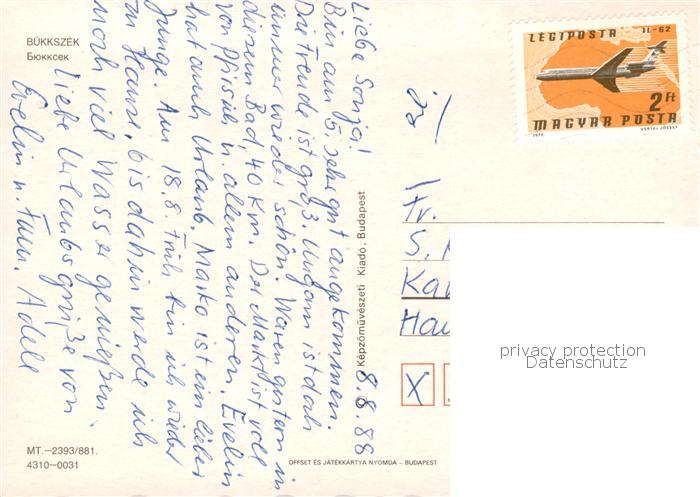 BÜKKSZÉK
Бюкксек
8.8.88
Liebe Sonja!
Bin am 5. sehr gut angekommen.
Die Freude ist groß. Ungarn ist doch
immer wieder schön. Waren gestern in
diesem Bad, 40 km. Der Markt ist voll
von Pfirsich u. allem anderen. Evelin
hat auch Urlaub. Marko ist ein lieber
Junge. Am 18.8. früh bin ich wieder
zu Hause, bis dahin werde ich
noch viel Wasser genießen.
Liebe Urlaubsgrüße von
Evelin u. Fam. Adele
MT.—2393/881.
4310—0031
Képzőművészeti Kiadó, Budapest
OFFSET ÉS JÁTÉKKÁRTYA NYOMDA – BUDAPEST
LÉGIPOSTA IL-62
2 Ft
MAGYAR POSTA
1977 VERTEL JÓZSEF
Fr.
S.
Ka
Hau
X
privacy protection
Datenschutz